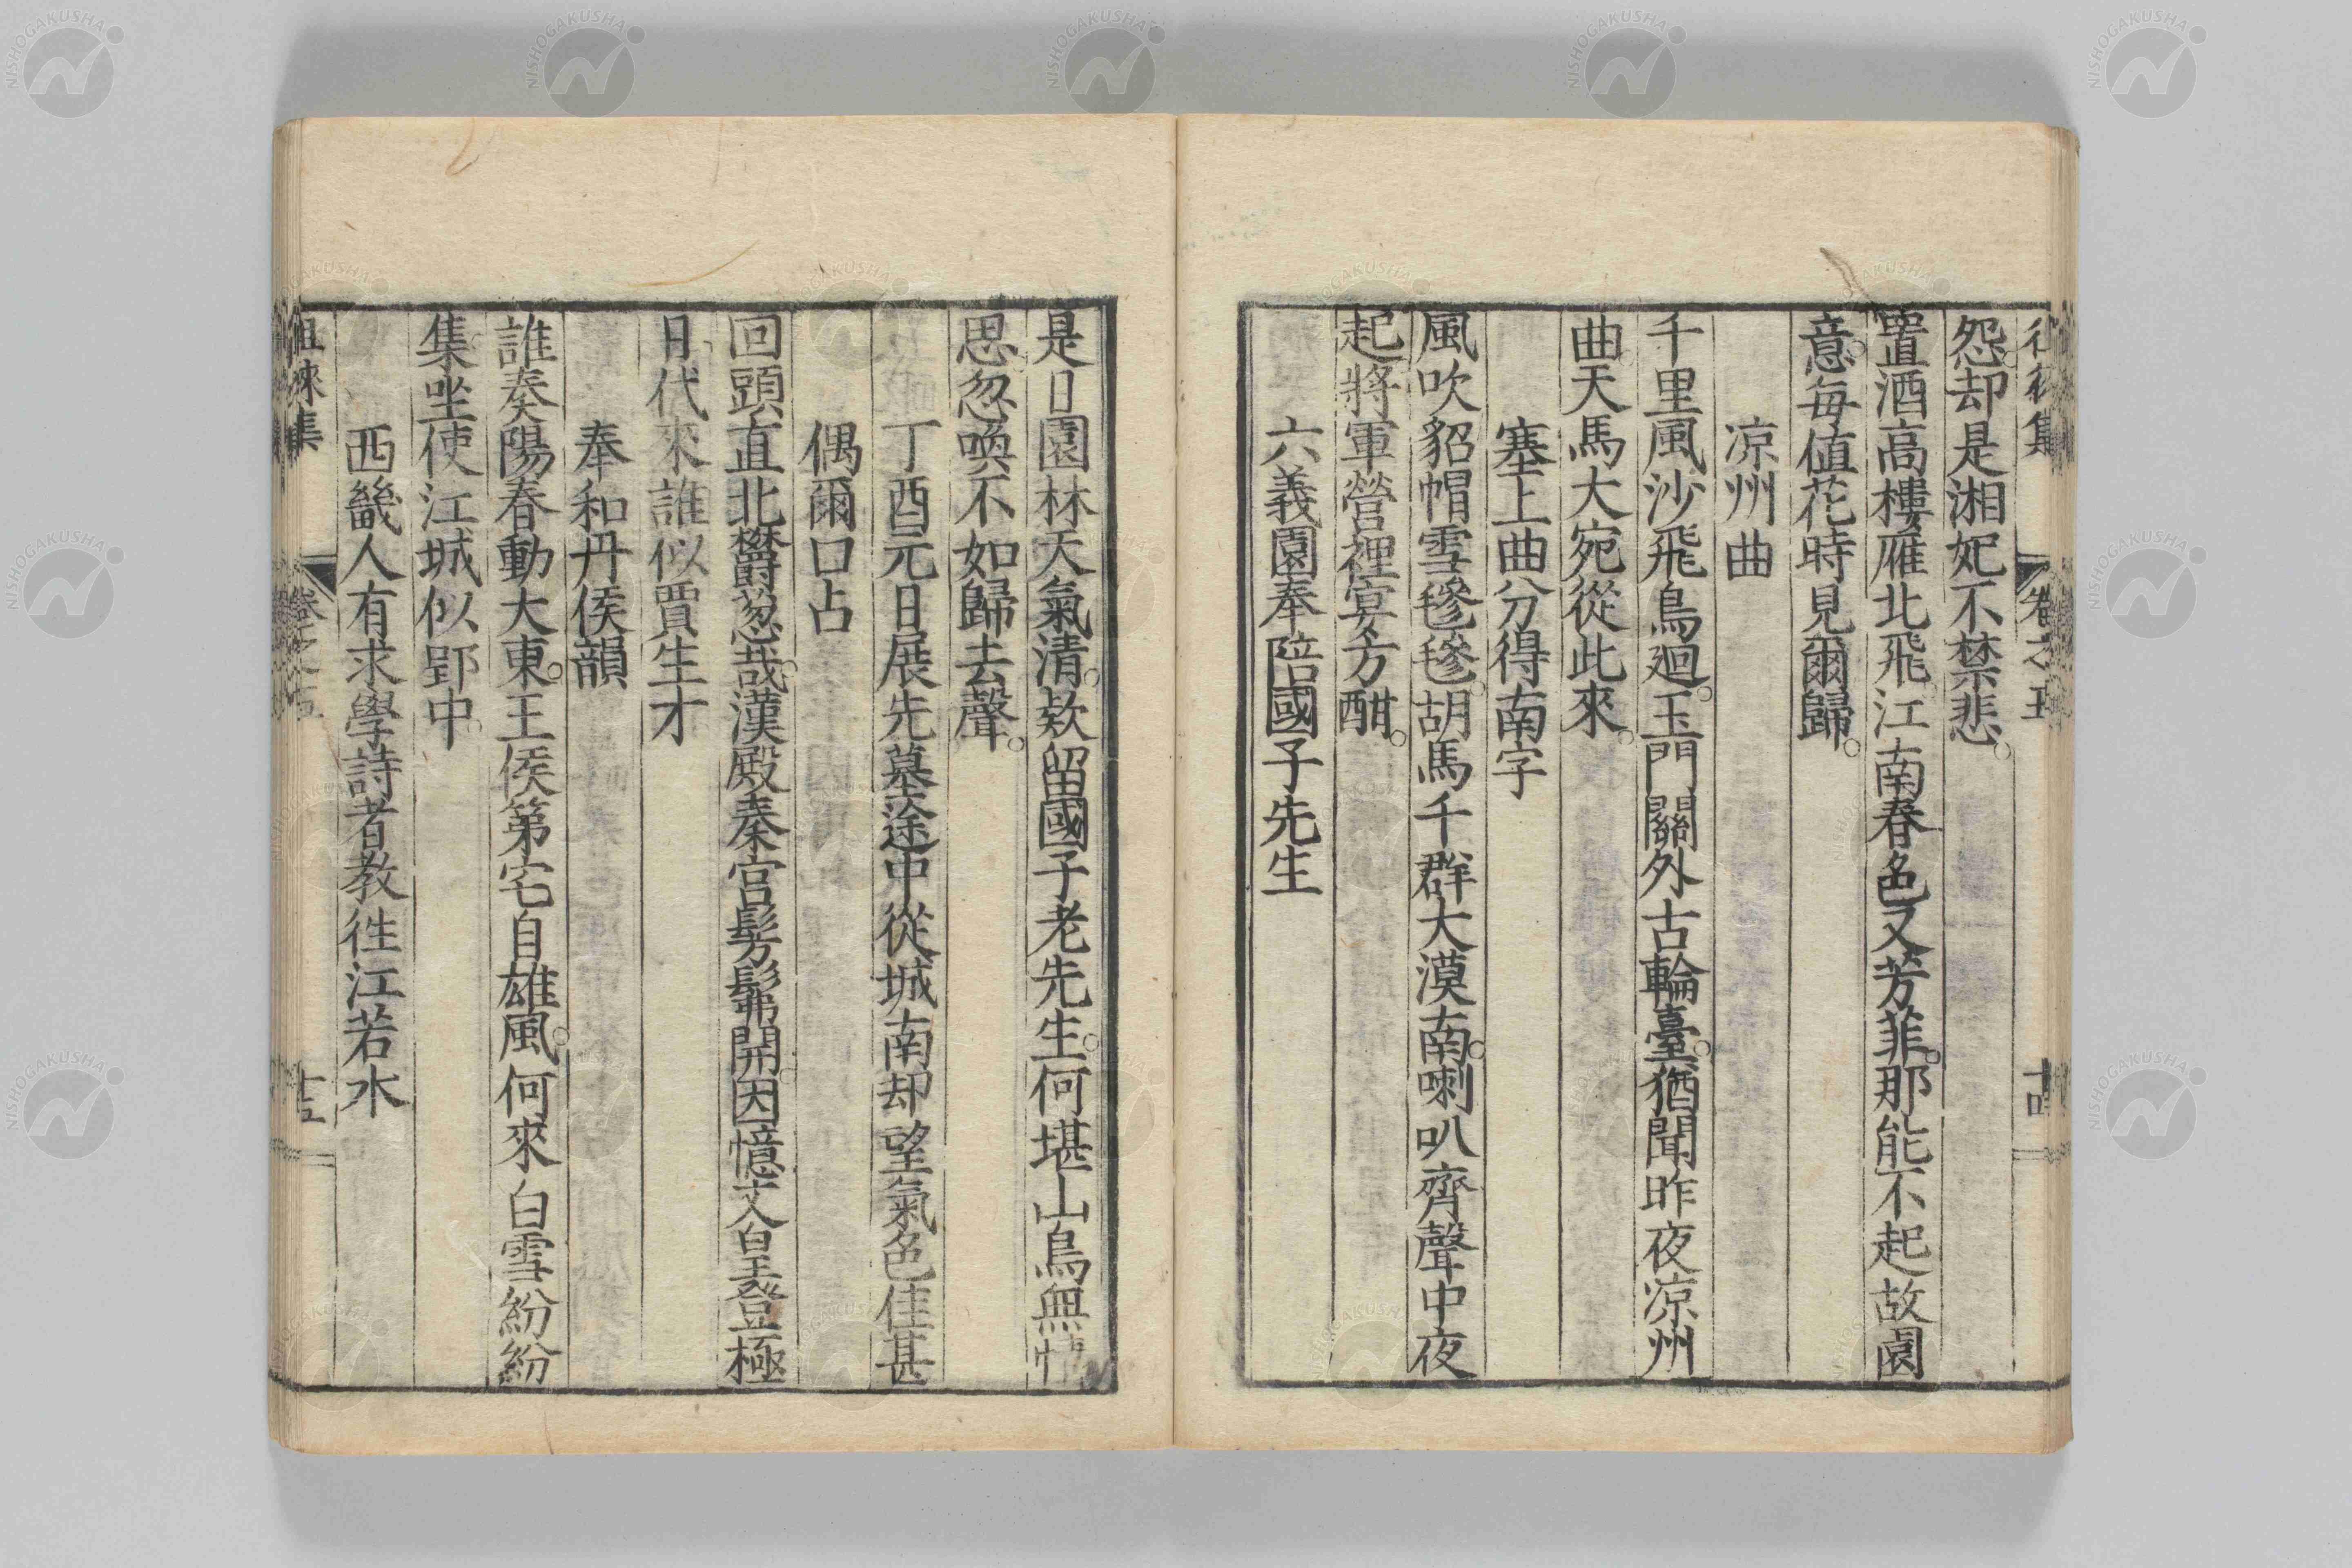 怨却是湘妃不禁悲
置酒高樓雁北飛江南春色又芳菲那能不起故園
意每値花時見爾歸
凉州曲
千里風沙飛鳥廻玉門關外古輪臺猶聞昨夜凉州
曲天馬大宛從此來
塞上曲分得南字
風吹貂帽雪毿毿胡馬千群大漠南喇叭齊聲中夜
起將軍營裡宴方酣
六義園奉陪國子先生
是日園林天氣清欵留國子老先生何堪山鳥無情
思忽喚不如歸去聲
丁酉元日展先墓途中從城南却望氣色佳甚
偶爾口占
回頭直北欝葱哉漢殿秦宮髣髴開因憶文皇登極
日代來誰似賈生才
奉和丹侯韻
誰奏陽春動大東王侯第宅自雄風何來白雪紛紛
集坐使江城似郢中
西畿人有求學詩者教徃江若水
徂徠集
卷之五
十五